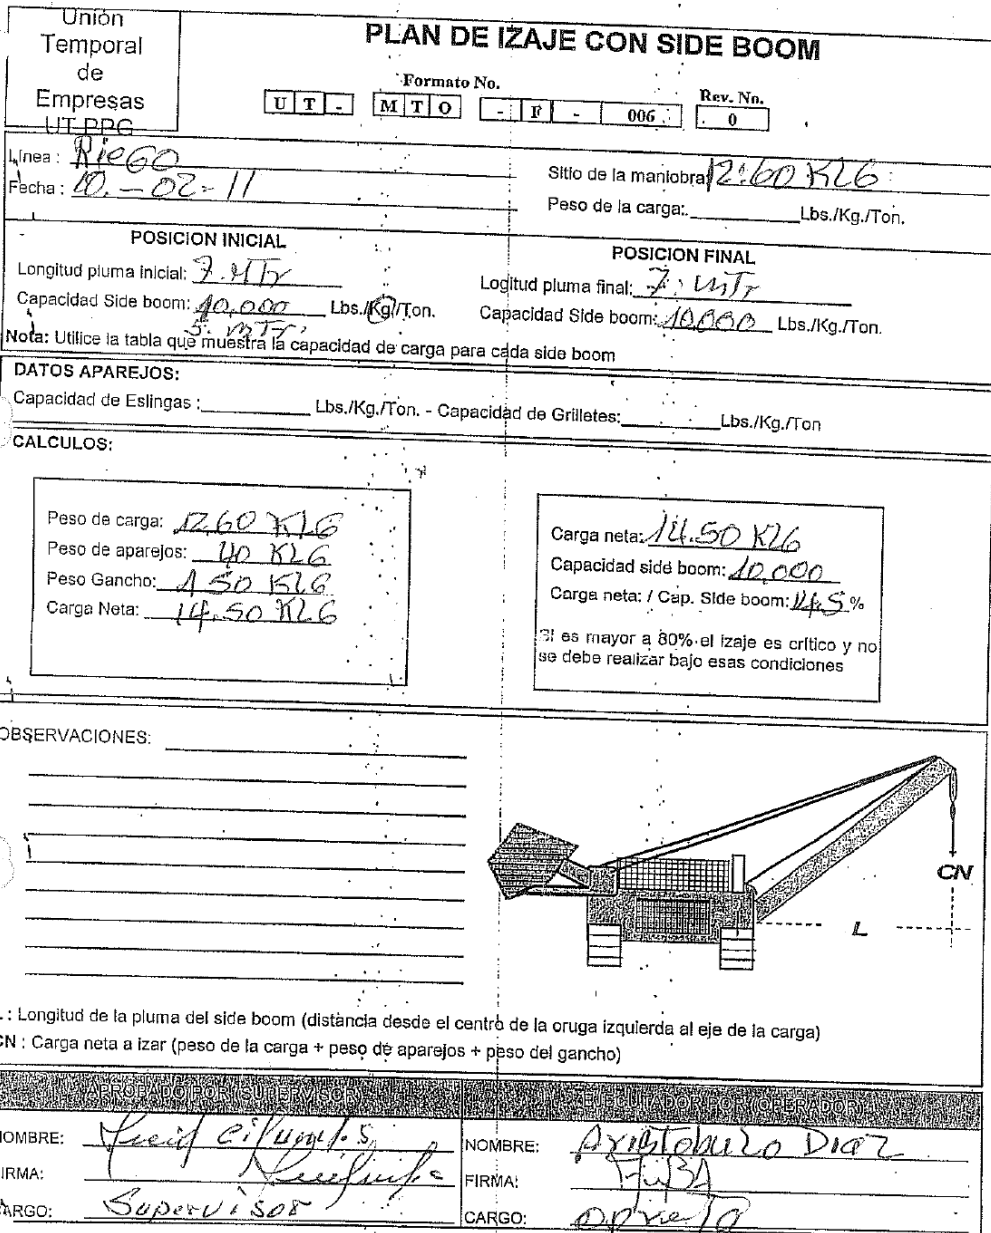 Unión
Temporal
de
Empresas
UT PPG
PLAN DE IZAJE CON SIDE BOOM
Formato No.
Rev. No.
U T - M T O - F - 006
0
Línea : RieGO
Fecha : 10.-02-11
Sitio de la maniobra 12:60 KLG
Peso de la carga:.__________Lbs./Kg./Ton.
POSICION INICIAL
POSICION FINAL
Longitud pluma inicial: 7.MTr
Logitud pluma final: 7. MTr
Capacidad Side boom: 10,000 Lbs./Kg/Ton.
Capacidad Side boom: 10,000 Lbs./Kg./Ton.
5. MTr.
Nota: Utilice la tabla que muestra la capacidad de carga para cada side boom
DATOS APAREJOS:
Capacidad de Eslingas :__________ Lbs./Kg./Ton. - Capacidad de Grilletes:__________Lbs./Kg./Ton
CALCULOS:
Peso de carga: 1260 KLG
Peso de aparejos: 40 KLG
Peso Gancho: 150 KLG
Carga Neta: 14.50 KLG
Carga neta: 14.50 KLG
Capacidad side boom: 10,000
Carga neta: / Cap. Side boom: 14.5 %
Si es mayor a 80% el izaje es crítico y no
se debe realizar bajo esas condiciones
OBSERVACIONES:
CN
L
L : Longitud de la pluma del side boom (distancia desde el centro de la oruga izquierda al eje de la carga)
CN : Carga neta a izar (peso de la carga + peso de aparejos + peso del gancho)
APROBADO POR (SUPERVISOR)
EJECUTADOR POR (OPERADOR)
NOMBRE:
NOMBRE: Aristobulo Diaz
FIRMA:
FIRMA:
CARGO: Supervisor
CARGO: